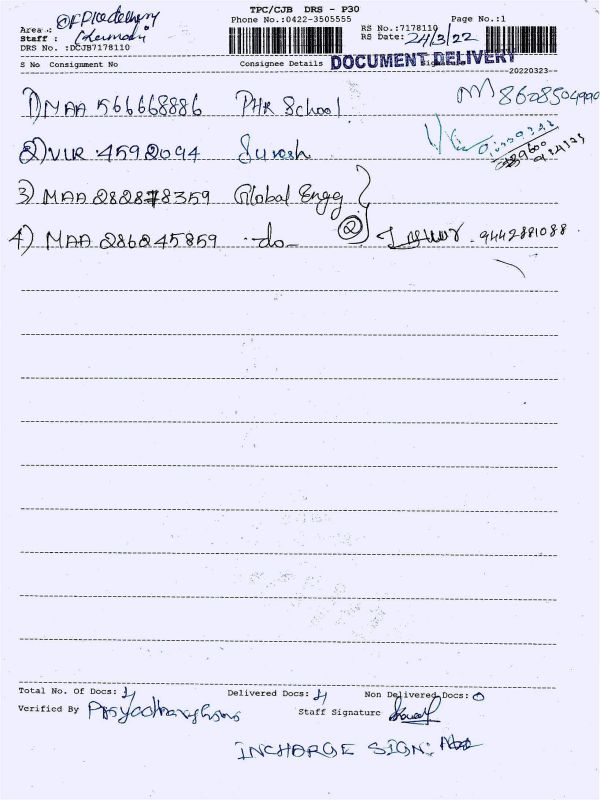 TPC/CJB DRS - P30
Phone No.:0422-3505555
RS No.:7178110
Page No.:1
Area :
Staff :
RS Date: 24/3/22
DRS No. :DCJB7178110
S No Consignment No Consignee Details Signature
DOCUMENT DELIVERY
20220323
1) MAA 566668886 PHR School
2) VUR 4592094 Suresh
3) MAA 282878359 Global Engg
4) MAA 286245859 -do- 2 9442881088
Total No. Of Docs: 4 Delivered Docs: 4 Non Delivered Docs: 0
Verified By Staff Signature
INCHARGE SIGN: